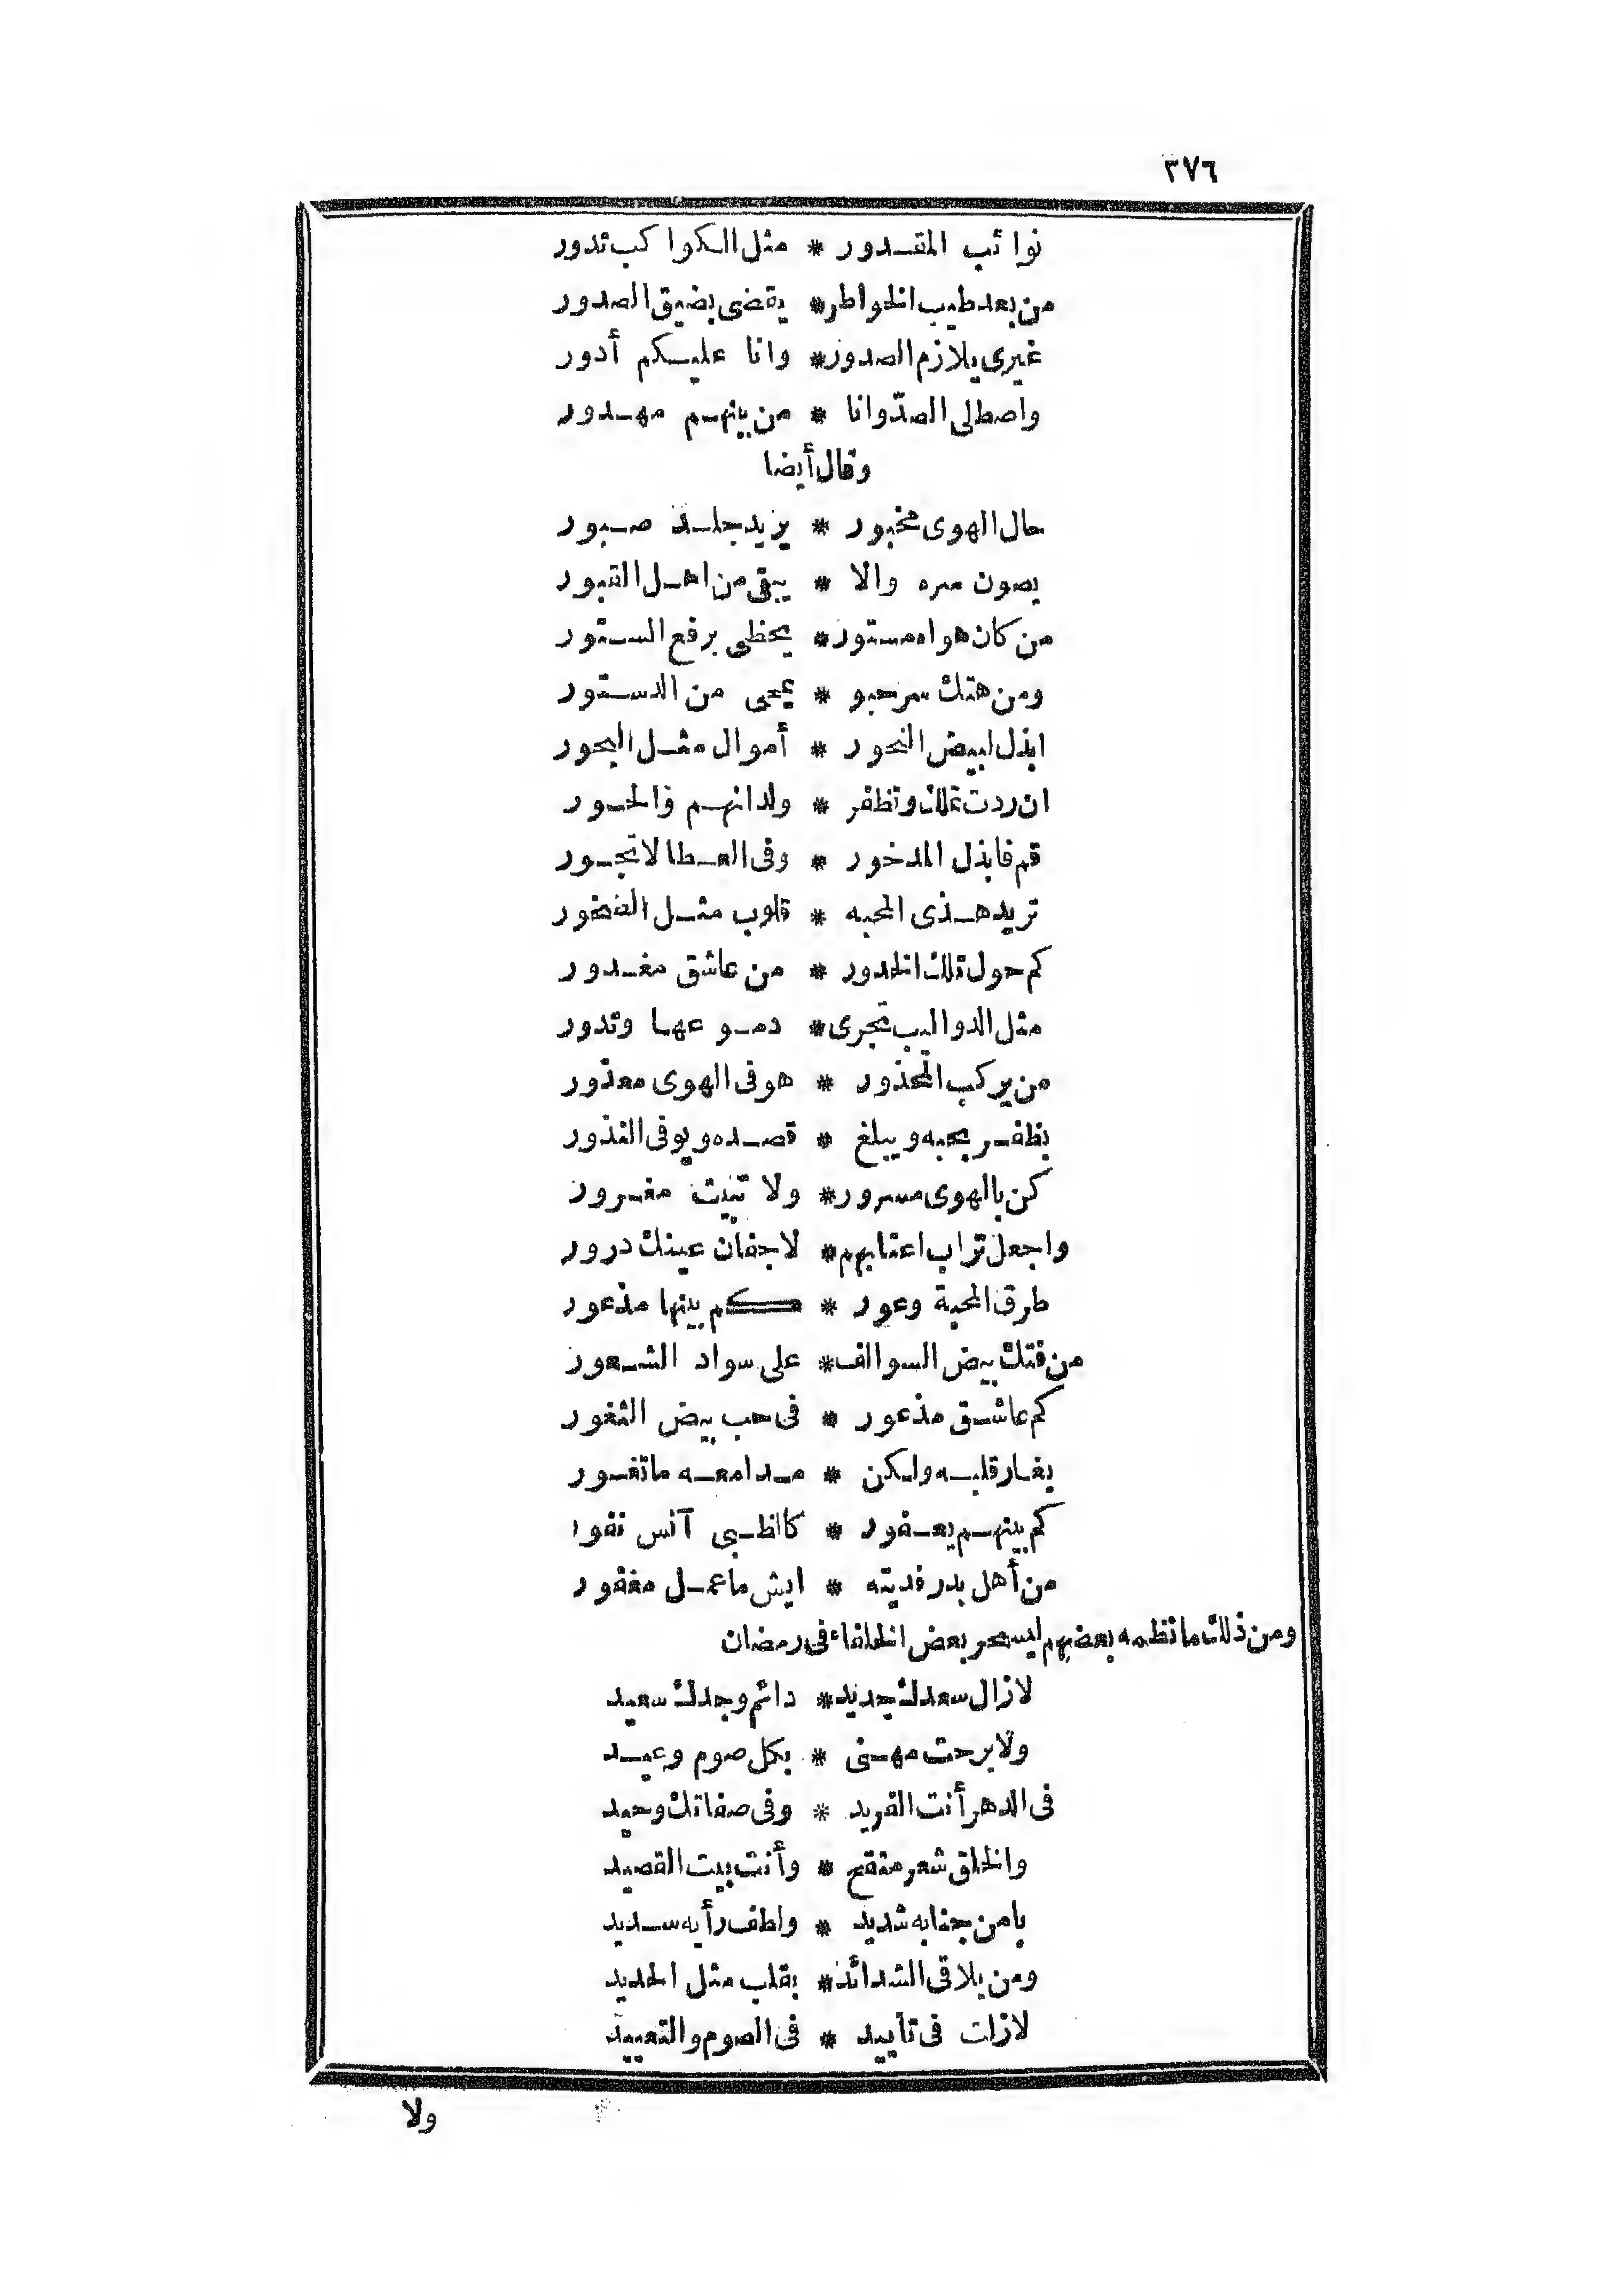 ٣٧٦
نوائب المقدور * مثل الكواكب تدور
من بعد طيب الخواطر * يقضى بضيق الصدور
غيرى يلازم الصدور * وانا عليكم أدور
واصطلى الصدّ وانا * من بينهم مهدور
وقال أيضا
حال الهوى مخبور * يريد جلد صبور
يصون سره والا * يبقى من اهل القبور
من كان هواه مستور * يحظى برفع الستور
ومن هتك سر حبو * يمحى من الدستور
ابذل لبيض النحور * أموال مثل البحور
ان ردت تملك وتظفر * ولدانهم والحور
قم فابذل المدخور * وفى العطا لا تجور
تريد هذى المحبه * قلوب مثل الصخور
كم حول تلك الخدور * من عاشق مغدور
مثل الدواليب تجرى * دموعها وتدور
من يركب المحذور * هو فى الهوى معذور
يظفر بحبه ويبلغ * قصده ويوفى النذور
كن بالهوى مسرور * ولا تبيت مغرور
واجعل تراب اعتابهم * لاجفان عينك درور
طرق المحبة وعور * كم بينها مذعور
من فتك بيض السوالف * على سواد الشعور
كم عاشق مذعور * فى حب بيض الثغور
يغار قلبه ولكن * مدامعه ما تغور
كم بينهم يعفور * كالظبى آنس نفور
من أهل بدر فديته * ايش ما عمل مغفور
ومن ذلك ما نظمه بعضهم ليسحر بعض الخلفاء فى رمضان
لا زال سعدك جديد * دائم وجدك سعيد
ولا برحت مهنى * بكل صوم وعيد
فى الدهر أنت الفريد * وفى صفاتك وحيد
والخلق شعر منقح * وأنت بيت القصيد
يا من جنابه شديد * ولطف رأيه سديد
ومن يلاقى الشدائد * بقلب مثل الحديد
لا زلت فى تأييد * فى الصوم والتعييد
ولا